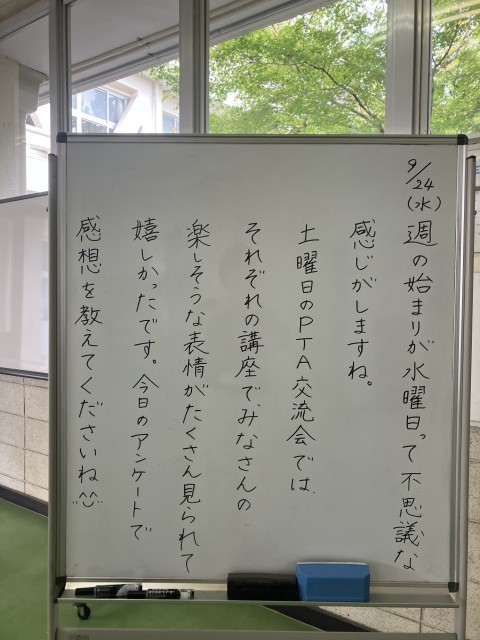 9/24(水)
週の始まりが水曜日って不思議な
感じがしますね。
土曜日のPTA交流会では、
それぞれの講座で、みなさんの
楽しそうな表情がたくさん見られて
嬉しかったです。今日のアンケートで
感想を教えてくださいね^^